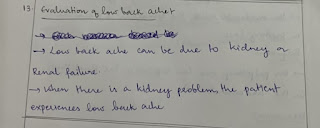 13. Evaluation of low back ache?
→ Low back ache can be due to kidney or
Renal failure.
→ When there is a kidney problem, the patient
experiences low back ache